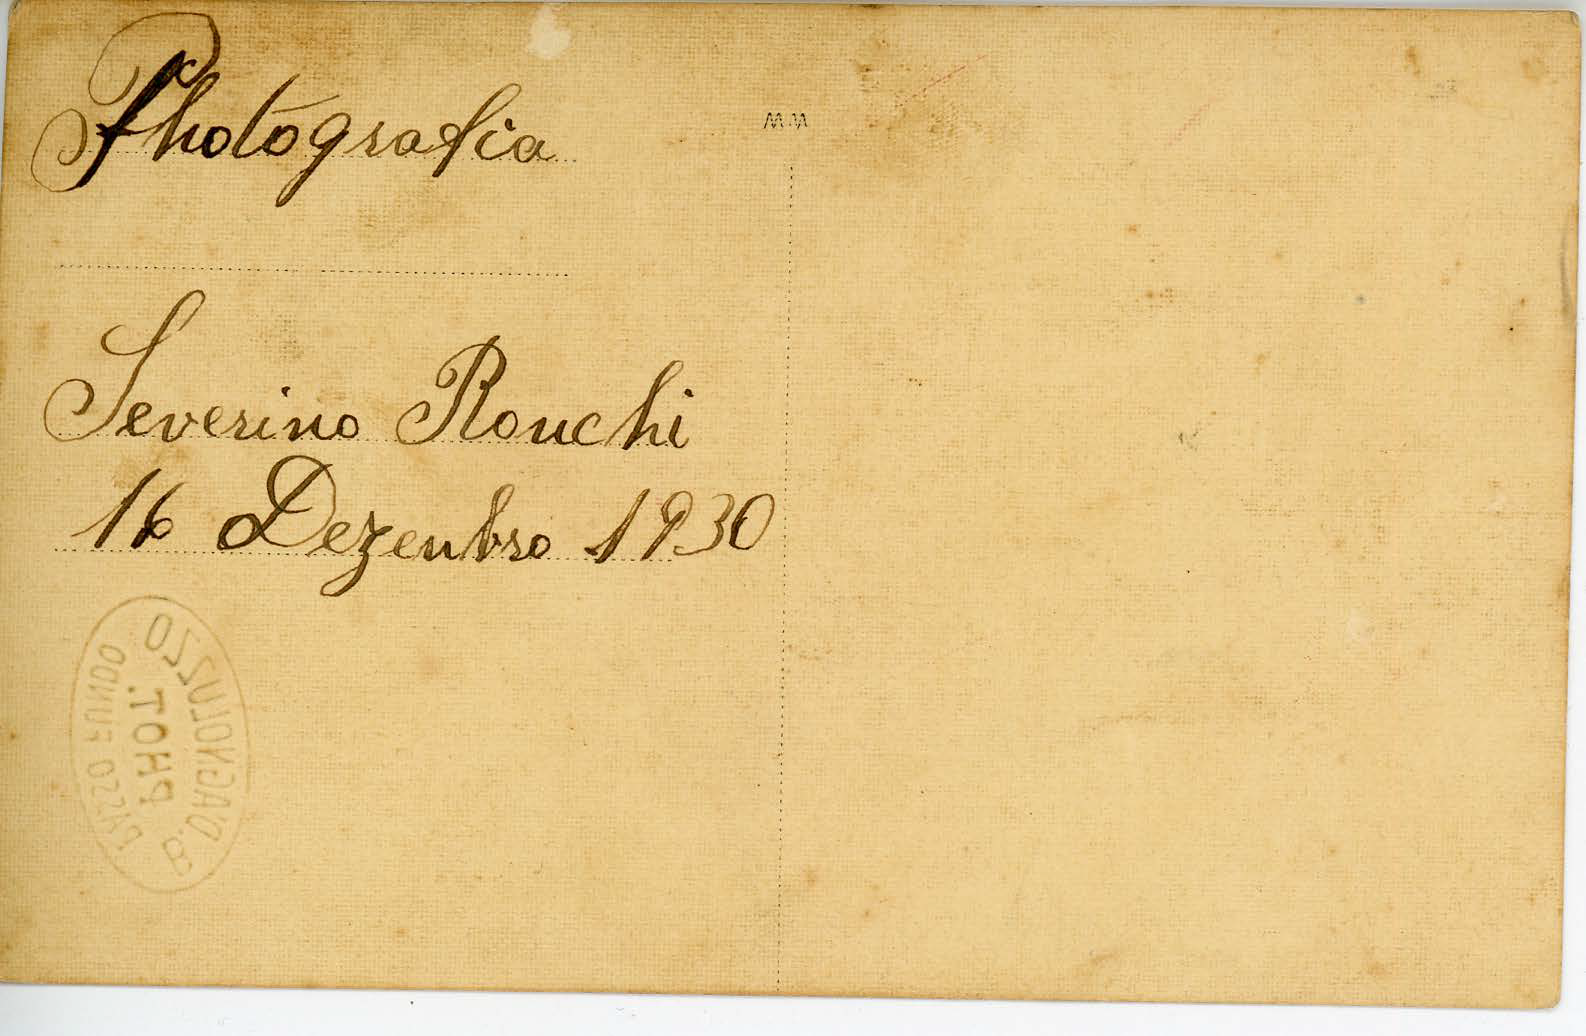 Photografia
Severino Ronchi
16 Dezenbro 1930
B. D'AGNOLUZZO
PHOT.
PASSO FUNDO